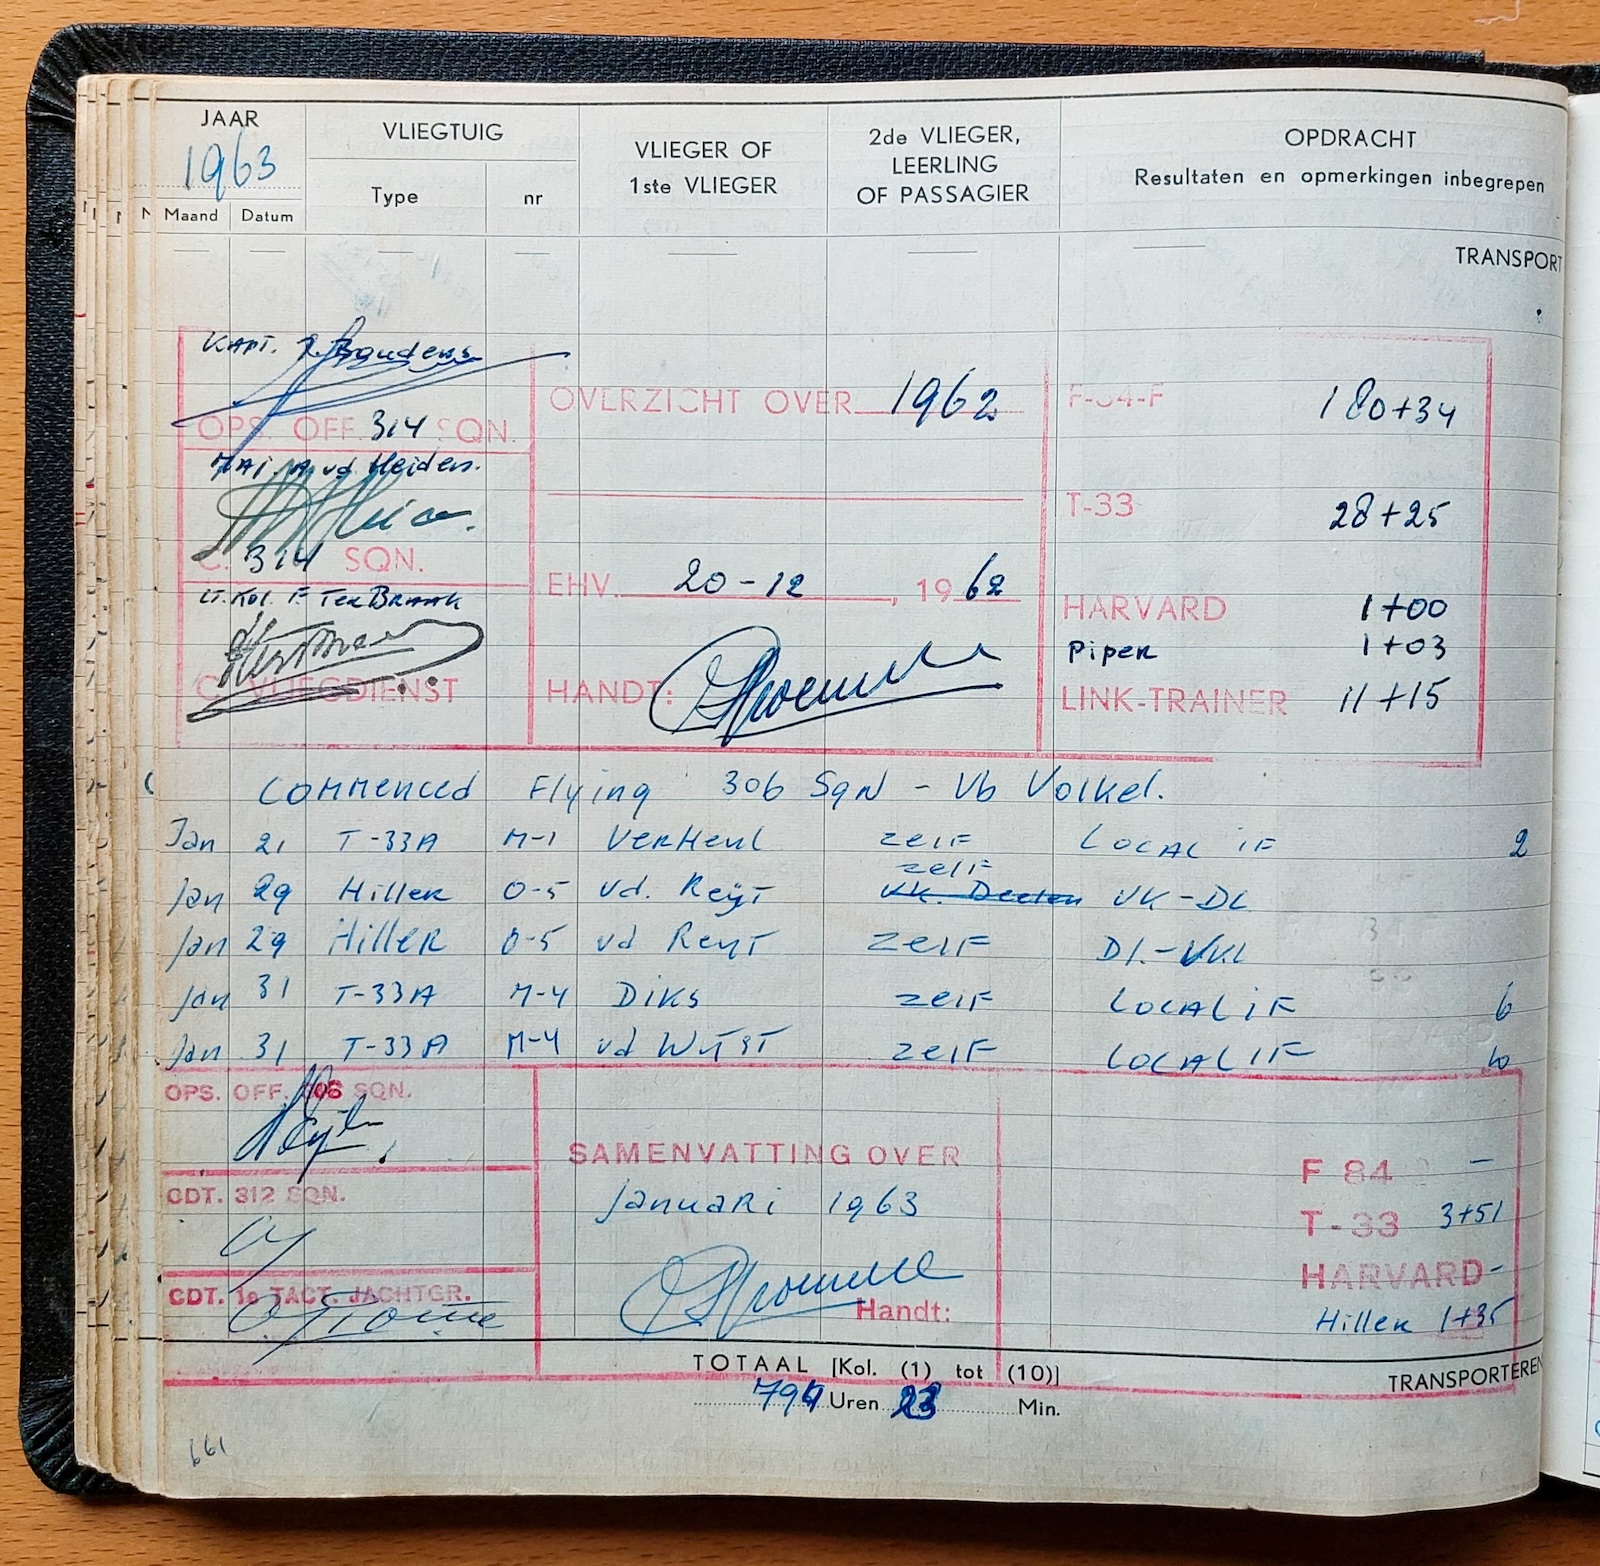 JAAR
1963
VLIEGTUIG
VLIEGER OF
1ste VLIEGER
2de VLIEGER,
LEERLING
OF PASSAGIER
OPDRACHT
Resultaten en opmerkingen inbegrepen
Maand Datum Type nr
TRANSPORT
KAPT. Boudens
OPS. OFF. 314 SQN.
MAJ. A vd Heiden.
C. 314 SQN.
LT. KOL. F. TER BRAAK
C. VLIEGDIENST
OVERZICHT OVER 1962
EHV. 20-12, 1962
HANDT:
F-84-F 180+34
T-33 28+25
HARVARD 1+00
Piper 1+03
LINK-TRAINER 11+15
Commenced Flying 306 Sqn - Vb Volkel.
Jan 21 T-33A M-1 VerHeul zelf LOCAL IF 2
zelf
Jan 29 Hiller O-5 vd. Reyt Deelen VK-DL
Jan 29 Hiller O-5 vd Reyt zelf DL-VKL
Jan 31 T-33A M-4 Diks zelf LOCAL IF 6
Jan 31 T-33A M-4 vd Wijst zelf LOCAL IF
OPS. OFF. 306 SQN.
CDT. 312 SQN.
CDT. 1e TACT. JACHTGR.
SAMENVATTING OVER
januari 1963
Handt:
F 84 -
T-33 3+51
HARVARD -
Hiller 1+35
TOTAAL [Kol. (1) tot (10)]
794 Uren 23 Min.
TRANSPORTEREN
661